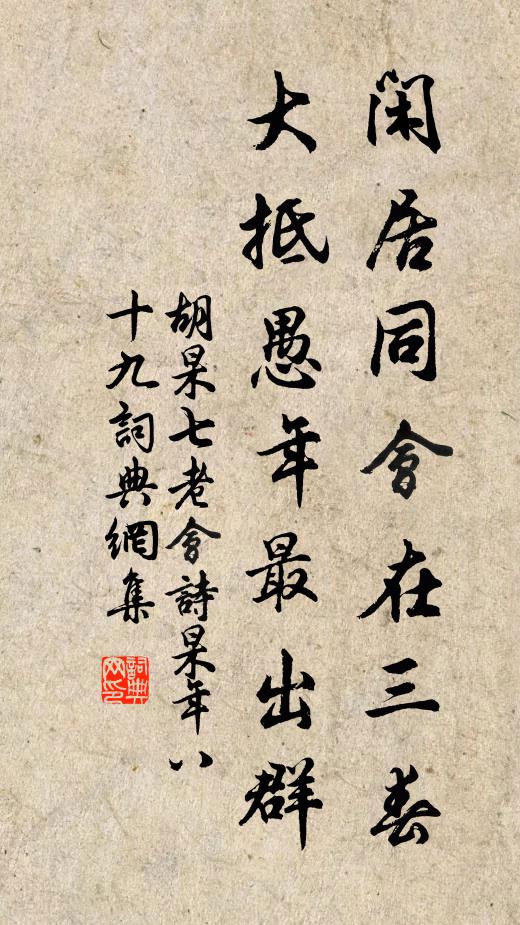 閑居同會在三春
大抵愚年最出群
胡杲七老會詩杲年八
十九詞典網集
詞典
网印